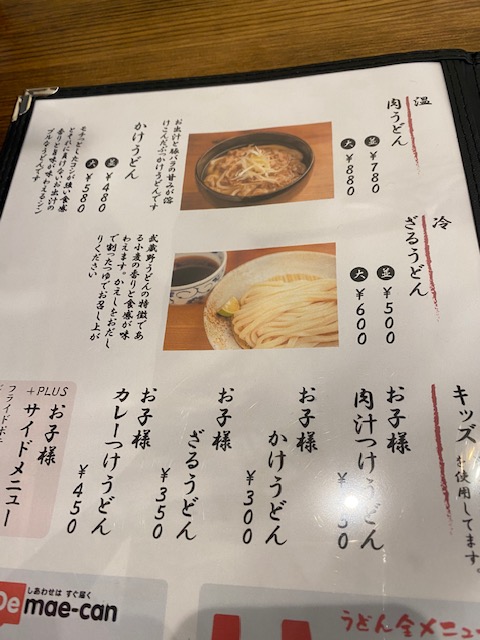 温
肉うどん
並 ¥780
大 ¥880
お出汁と豚バラの甘みが溶
けこんだぶっかけうどんです
かけうどん
並 ¥480
大 ¥580
モチっとしたコシが強い食感
とそれに負けないお出汁の
香りと旨味が味わえるシン
プルなうどんです
冷
ざるうどん
並 ¥500
大 ¥600
武蔵野うどんの特徴であ
る小麦の香りと食感が味
わえます。かえしをおだし
で割ったつゆでお召し上が
りください
キッズ
を使用してます。
お子様
肉汁つけうどん
お子様
かけうどん
¥300
お子様
ざるうどん
¥350
お子様
カレーつけうどん
¥450
+PLUS
お子様
サイドメニュー
フライドポテ
しあわせは すぐ届く
De mae-can
うどん全メニュー